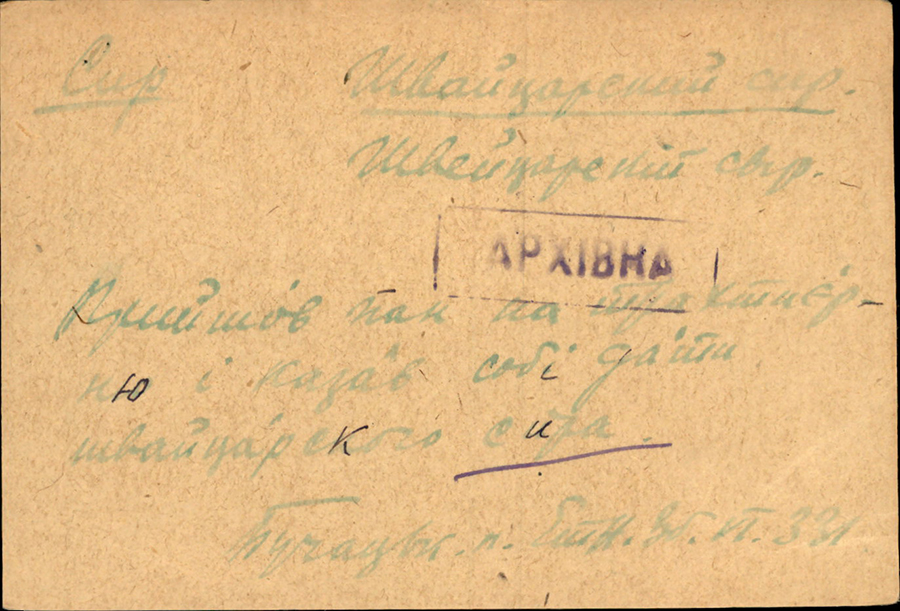 Сир Швайцарский сир.
Швейцарскій сыр.
АРХІВНА
Прийшо́в пан на трактиє́р-
ню і каза́в собі да́ти
швайца́рского сира.
Бучацьк. п. Етн. Зб. VI. 331